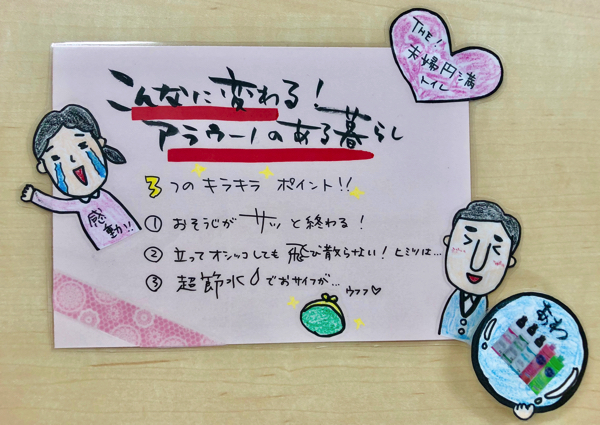 THE!
夫婦円満
トイレ
こんなに変わる!
アラウーノのある暮らし
3つのキラキラ ポイント!!
① おそうじが サッ と終わる!
② 立ってオシッコしても 飛び散らない! ヒミツは…
③ 超節水でおサイフが…
ウフフ♡
感動!!
あわ